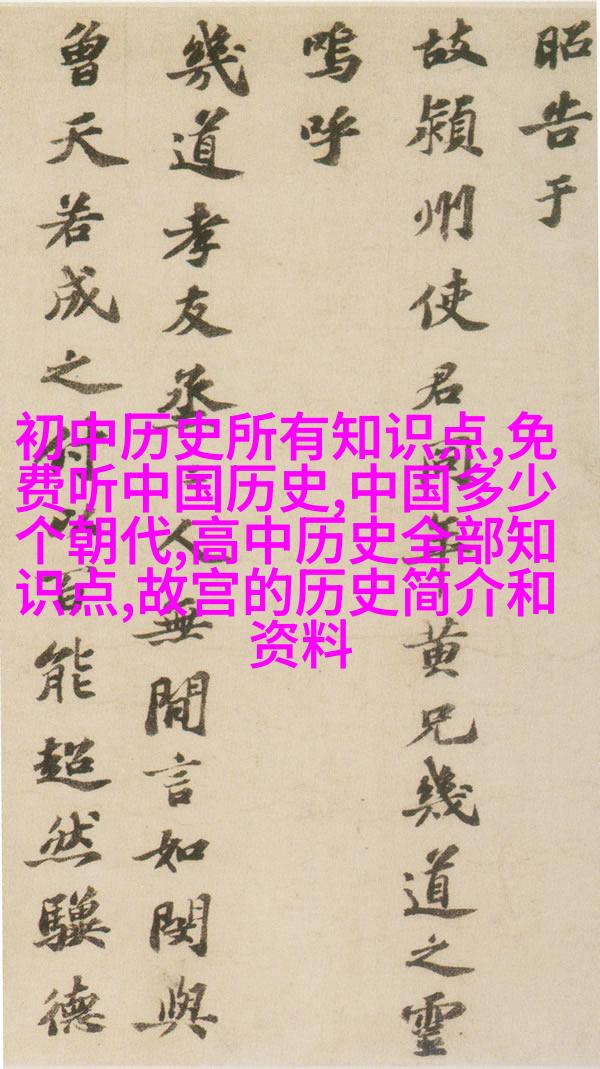 昭告于
故潁州使君同年黄兄幾道之靈
嗚呼
幾道孝友烝人無閒言如閔與
曾天若成之付以百能超然驥德
初中历史所有知识点,免
费听中国历史,中国多少
个朝代,高中历史全部知
识点,故宫的历史简介和
资料